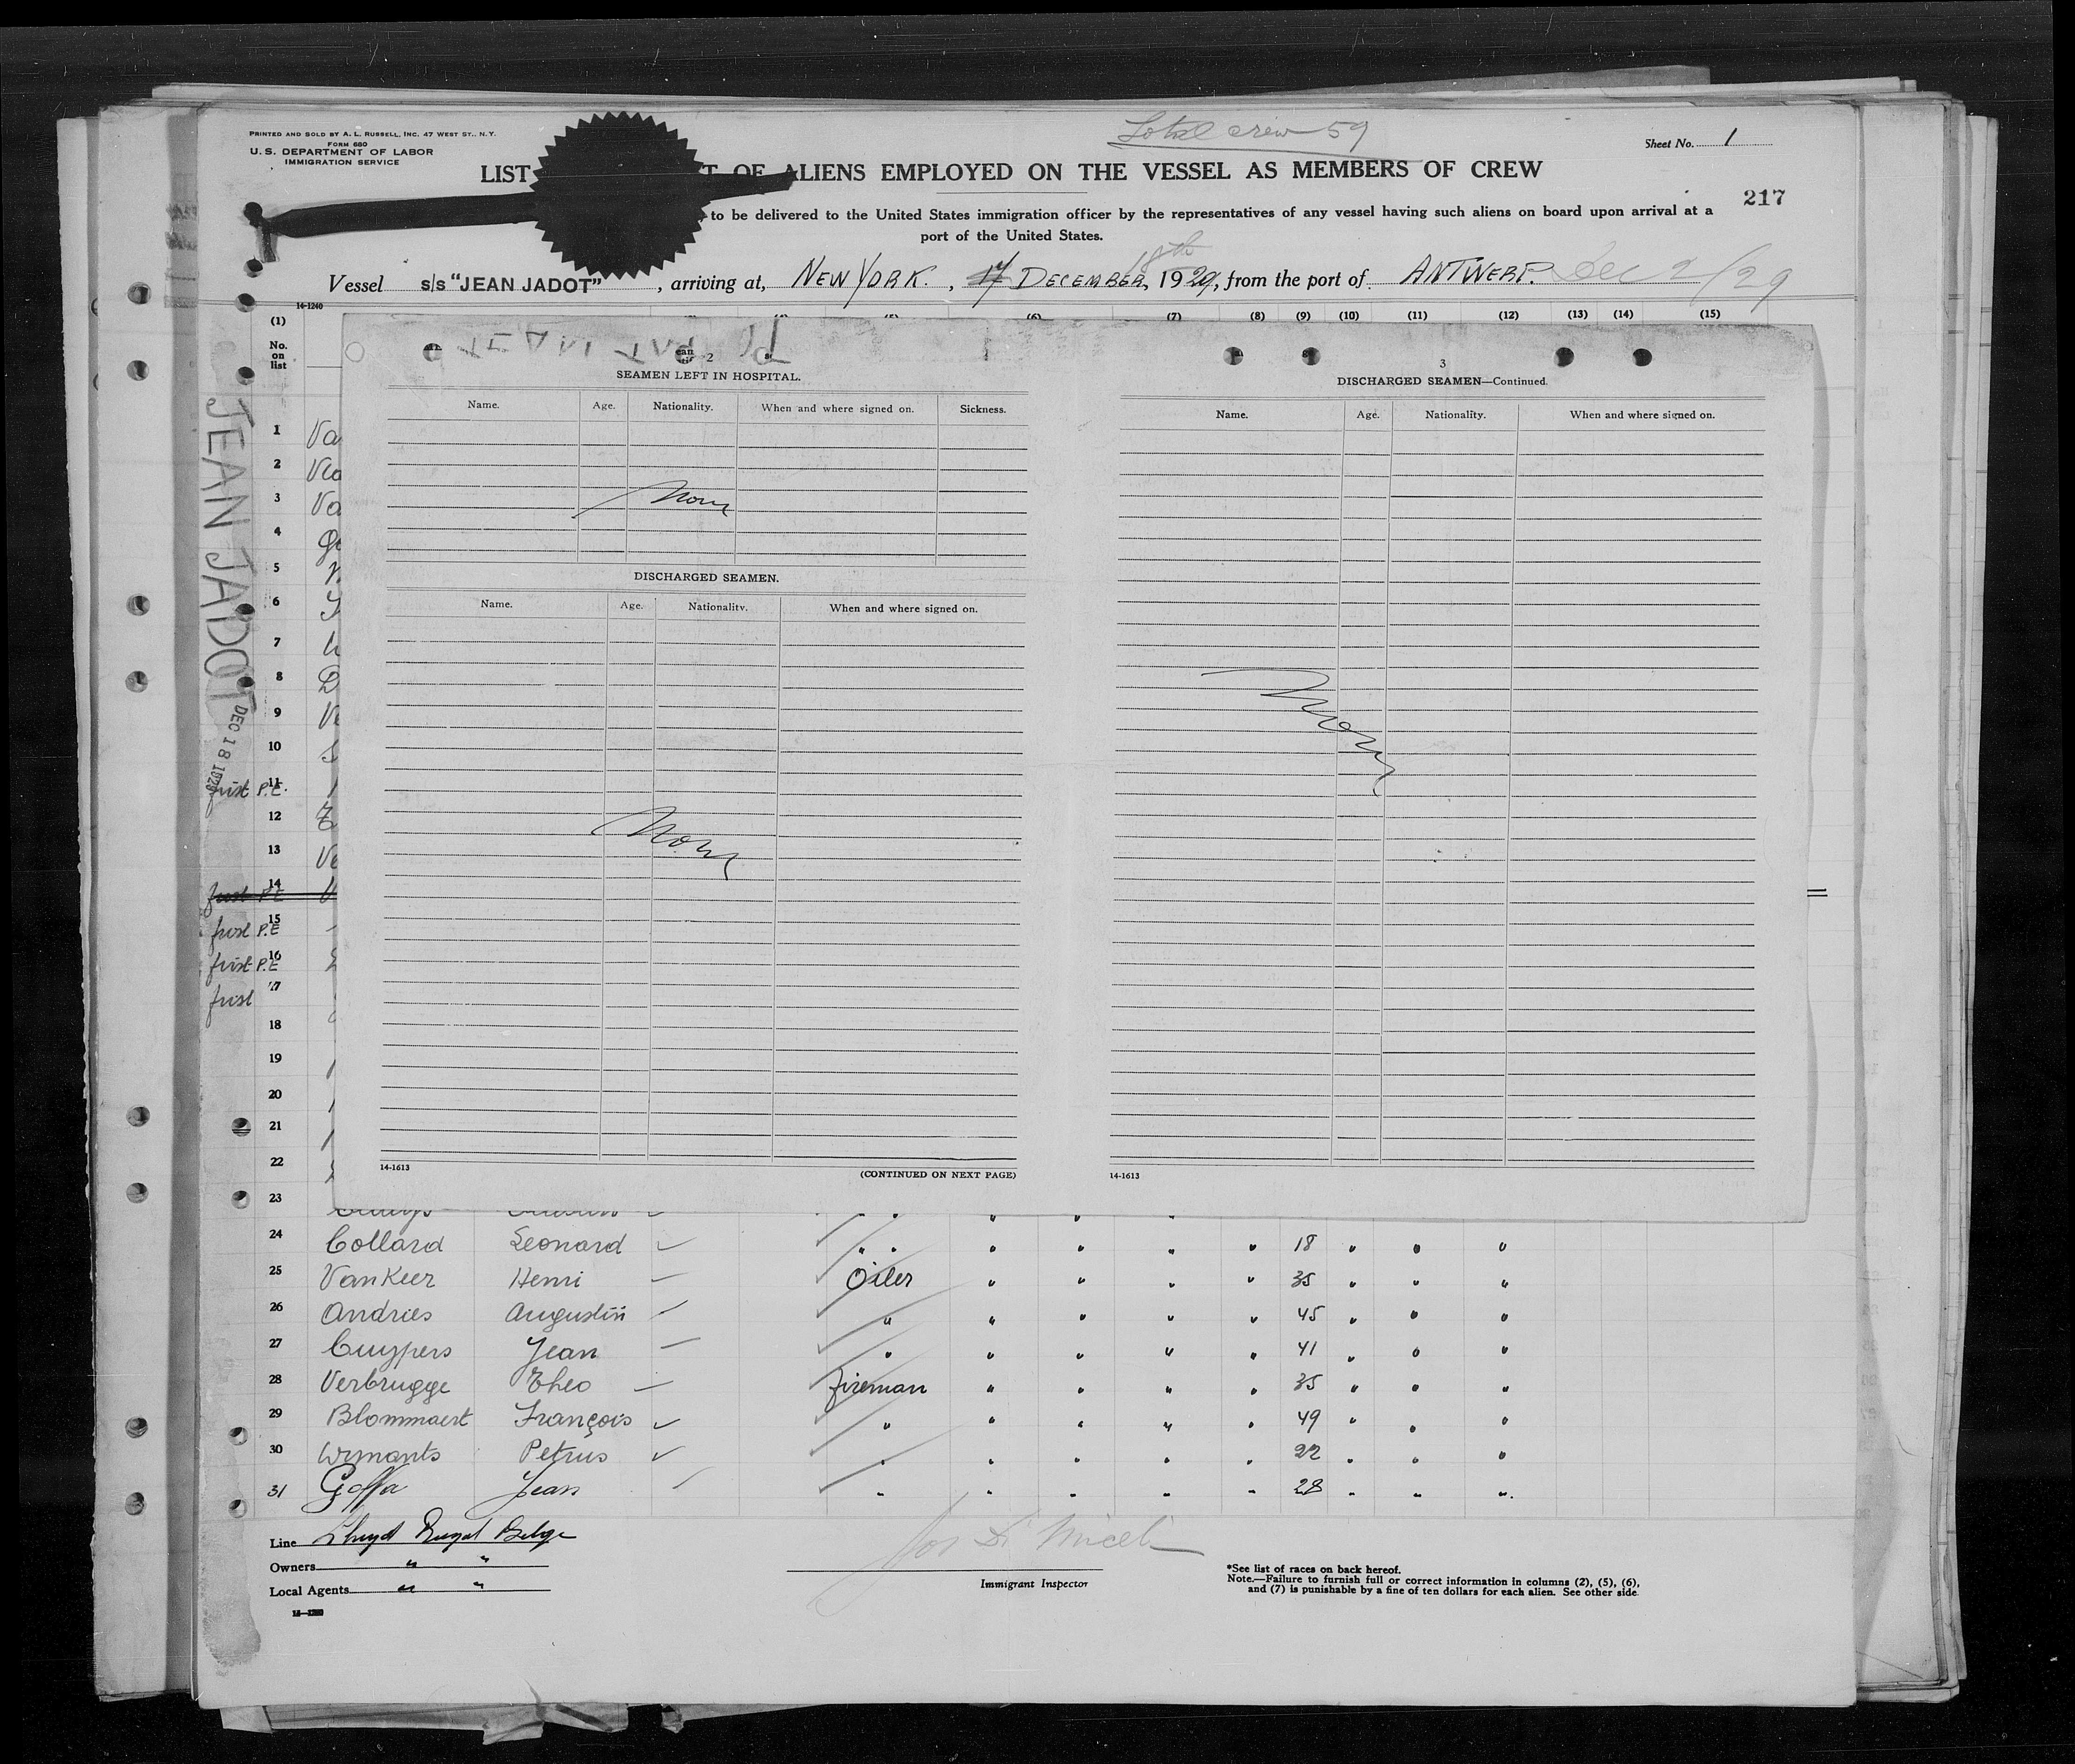 Total crew 59
PRINTED AND SOLD BY A. L. RUSSELL, INC. 47 WEST ST., N.Y.
FORM 680
U. S. DEPARTMENT OF LABOR
IMMIGRATION SERVICE
Sheet No. 1
LIST OF ALIENS EMPLOYED ON THE VESSEL AS MEMBERS OF CREW
217
to be delivered to the United States immigration officer by the representatives of any vessel having such aliens on board upon arrival at a
port of the United States.
18th
Vessel s/s "JEAN JADOT", arriving at, NEW YORK., 17 DECEMBER, 1929, from the port of ANTWERP. Dec 2/29
14-1240
(1) (6) (7) (8) (9) (10) (11) (12) (13) (14) (15)
No. on list
JEAN JADOT
DEC 18 1929
2
SEAMEN LEFT IN HOSPITAL.
Name. Age. Nationality. When and where signed on. Sickness.
None
DISCHARGED SEAMEN.
Name. Age. Nationality. When and where signed on.
None
14-1613 (CONTINUED ON NEXT PAGE)
3
DISCHARGED SEAMEN—Continued.
Name. Age. Nationality. When and where signed on.
None
14-1613
1 Va
2 Vla
3 Va
4
5
6
7
8 D
9 Ve
10
first P.E. 11
12
13 Ve
first P.E 14
first P.E 15
first P.E 16
first 17
18
19
20
21
22
23
24 Collard Leonard " " " " " " 18 " " "
25 VanKeer Henri Oiler " " " " 35 " " "
26 Andries Augustin " " " " " 45 " " "
27 Cuypers Jean " " " " " 41 " " "
28 Verbrugge Theo Fireman " " " " 35 " " "
29 Blommaert François " " " " " 49 " " "
30 Wymants Petrus " " " " " 22 " " "
31 Goffa Jean " " " " " 28 " " "
Line Lloyd Royal Belge
Owners " "
Local Agents " "
Immigrant Inspector
*See list of races on back hereof.
Note.—Failure to furnish full or correct information in columns (2), (5), (6),
and (7) is punishable by a fine of ten dollars for each alien. See other side